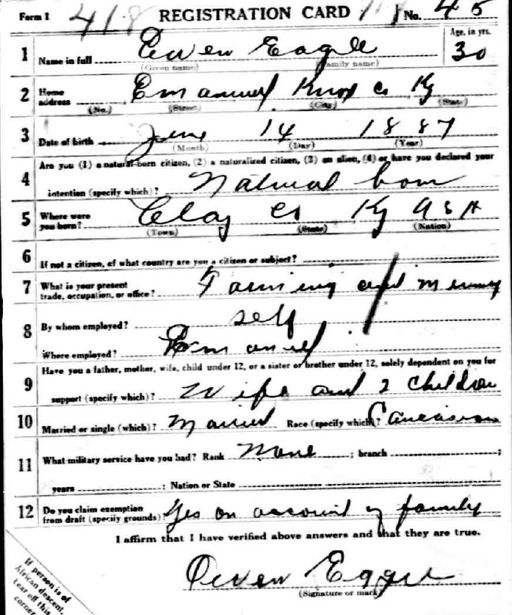 Form 1 418 REGISTRATION CARD No. 45
1 Name in full Owen Eagle Age, in yrs. 30
(Given name) (Family name)
2 Home address Emanuel Knox Co Ky
(No.) (Street) (City) (State)
3 Date of birth June 14 1887
(Month) (Day) (Year)
Are you (1) a natural-born citizen, (2) a naturalized citizen, (3) an alien, (4) or have you declared your
4 intention (specify which)? Natural born
5 Where were you born? Clay Co Ky USA
(Town) (State) (Nation)
6 If not a citizen, of what country are you a citizen or subject?
7 What is your present trade, occupation, or office? Farming and mining
8 By whom employed? self
Where employed? Emanuel
Have you a father, mother, wife, child under 12, or a sister or brother under 12, solely dependent on you for
9 support (specify which)? Wife and 2 children
10 Married or single (which)? Married Race (specify which)? Caucasian
11 What military service have you had? Rank None ; branch ;
years ; Nation or State
12 Do you claim exemption from draft (specify grounds)? Yes on account of family
I affirm that I have verified above answers and that they are true.
Owen
(Signature or mark)
If person is of
African descent,
tear off this
corner